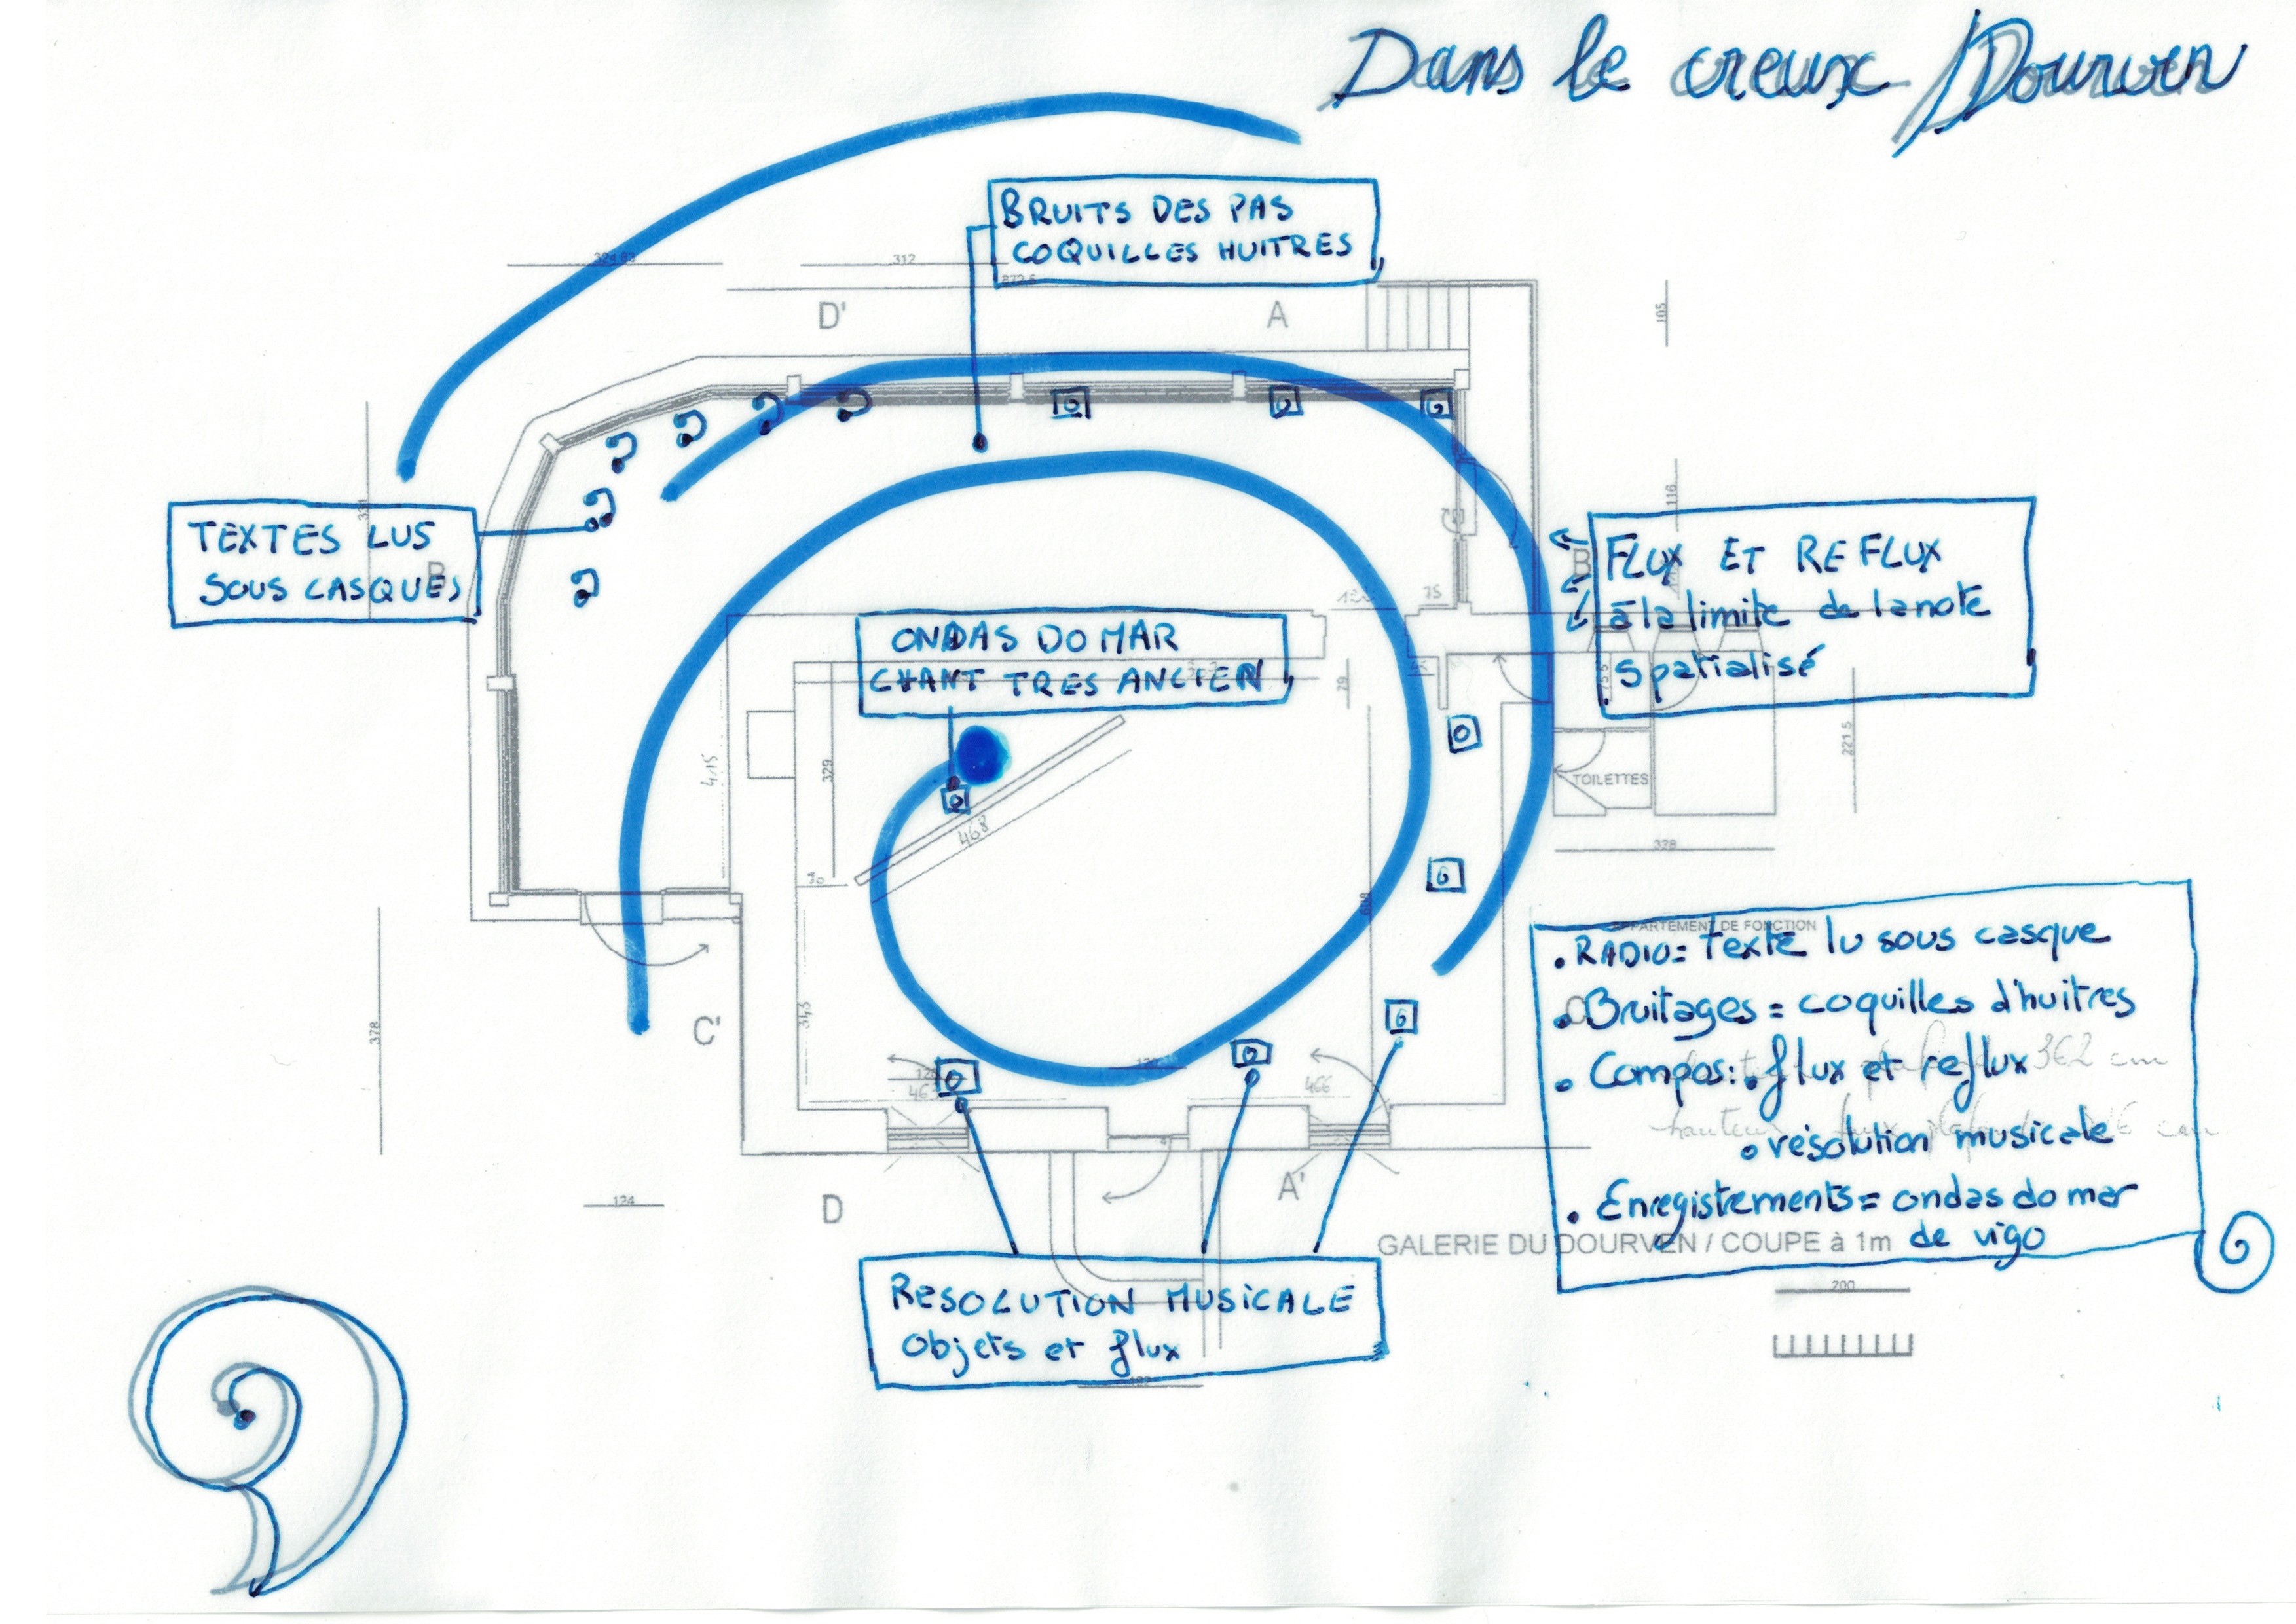 Dans le creux / Dourven
BRUITS DES PAS
COQUILLES HUITRES
324.83
312
872.5
D'
A
105
TEXTES LUS
SOUS CASQUES
B
116
FLUX ET REFLUX
à la limite de la note
spatialisé
75
ONDAS DO MAR
CHANT TRES ANCIEN
79
415
329
468
TOILETTES
221.5
328
30
APPARTEMENT DE FONCTION
. RADIO = Texte lu sous casque
. Bruitages = coquilles d'huitres
. Compos: . flux et reflux
362 cm
. résolution musicale
hauteur
. Enregistrements = ondas do mar
de vigo
C'
378
343
120
463
466
124
D
A'
GALERIE DU DOURVEN / COUPE à 1m
200
RESOLUTION MUSICALE
Objets et flux